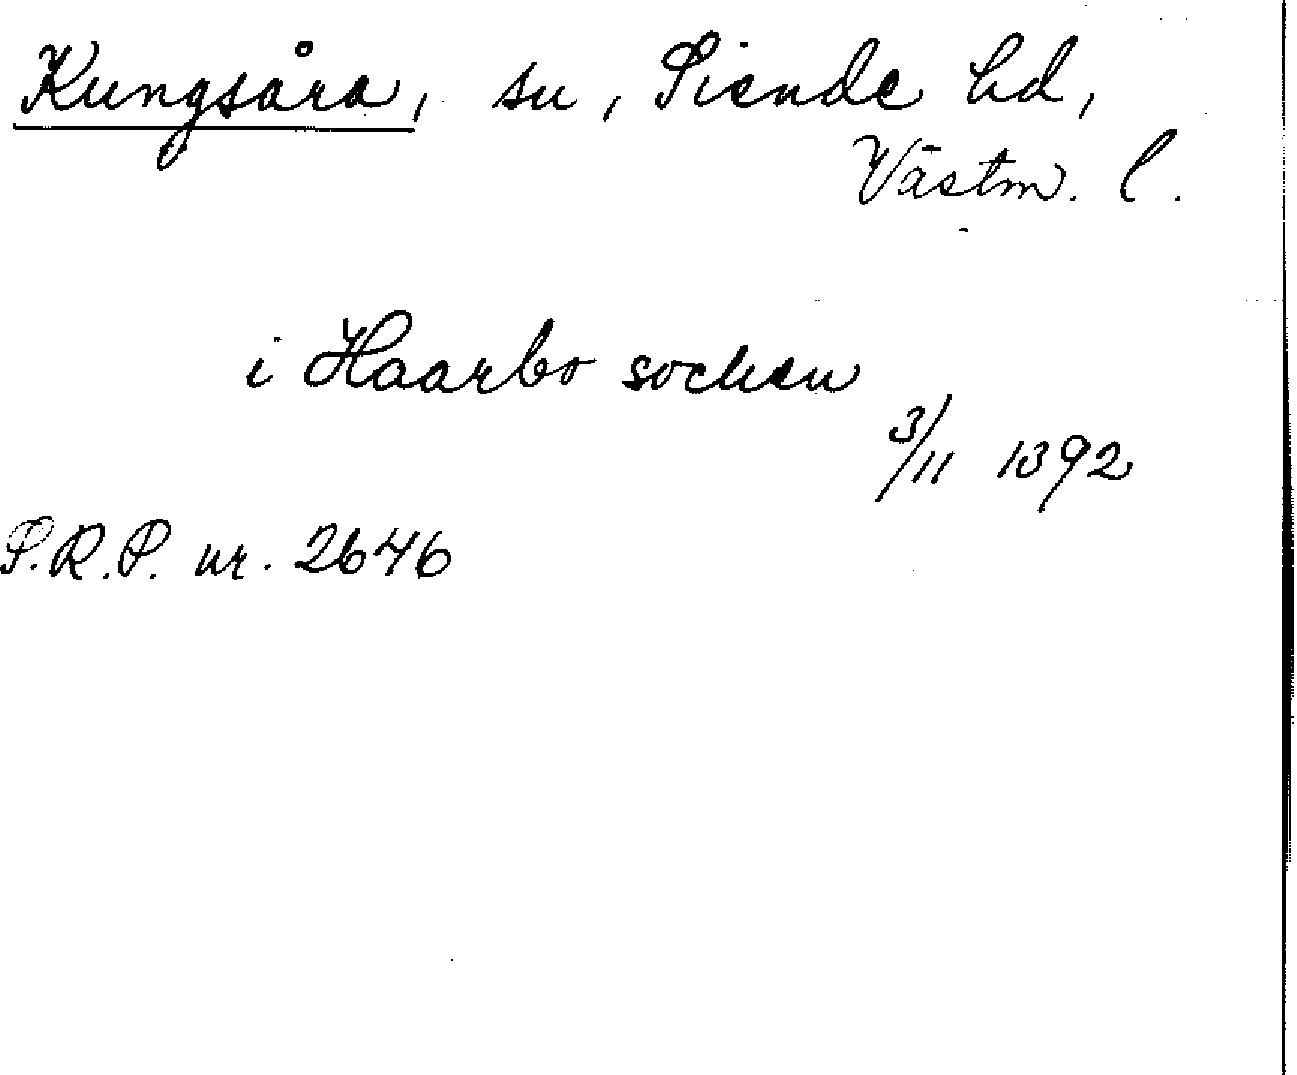 Kungsåra, sn, Siende hd,
Västm. l.
i Haarbo socken
3/11 1392
S.R.P. nr. 2646